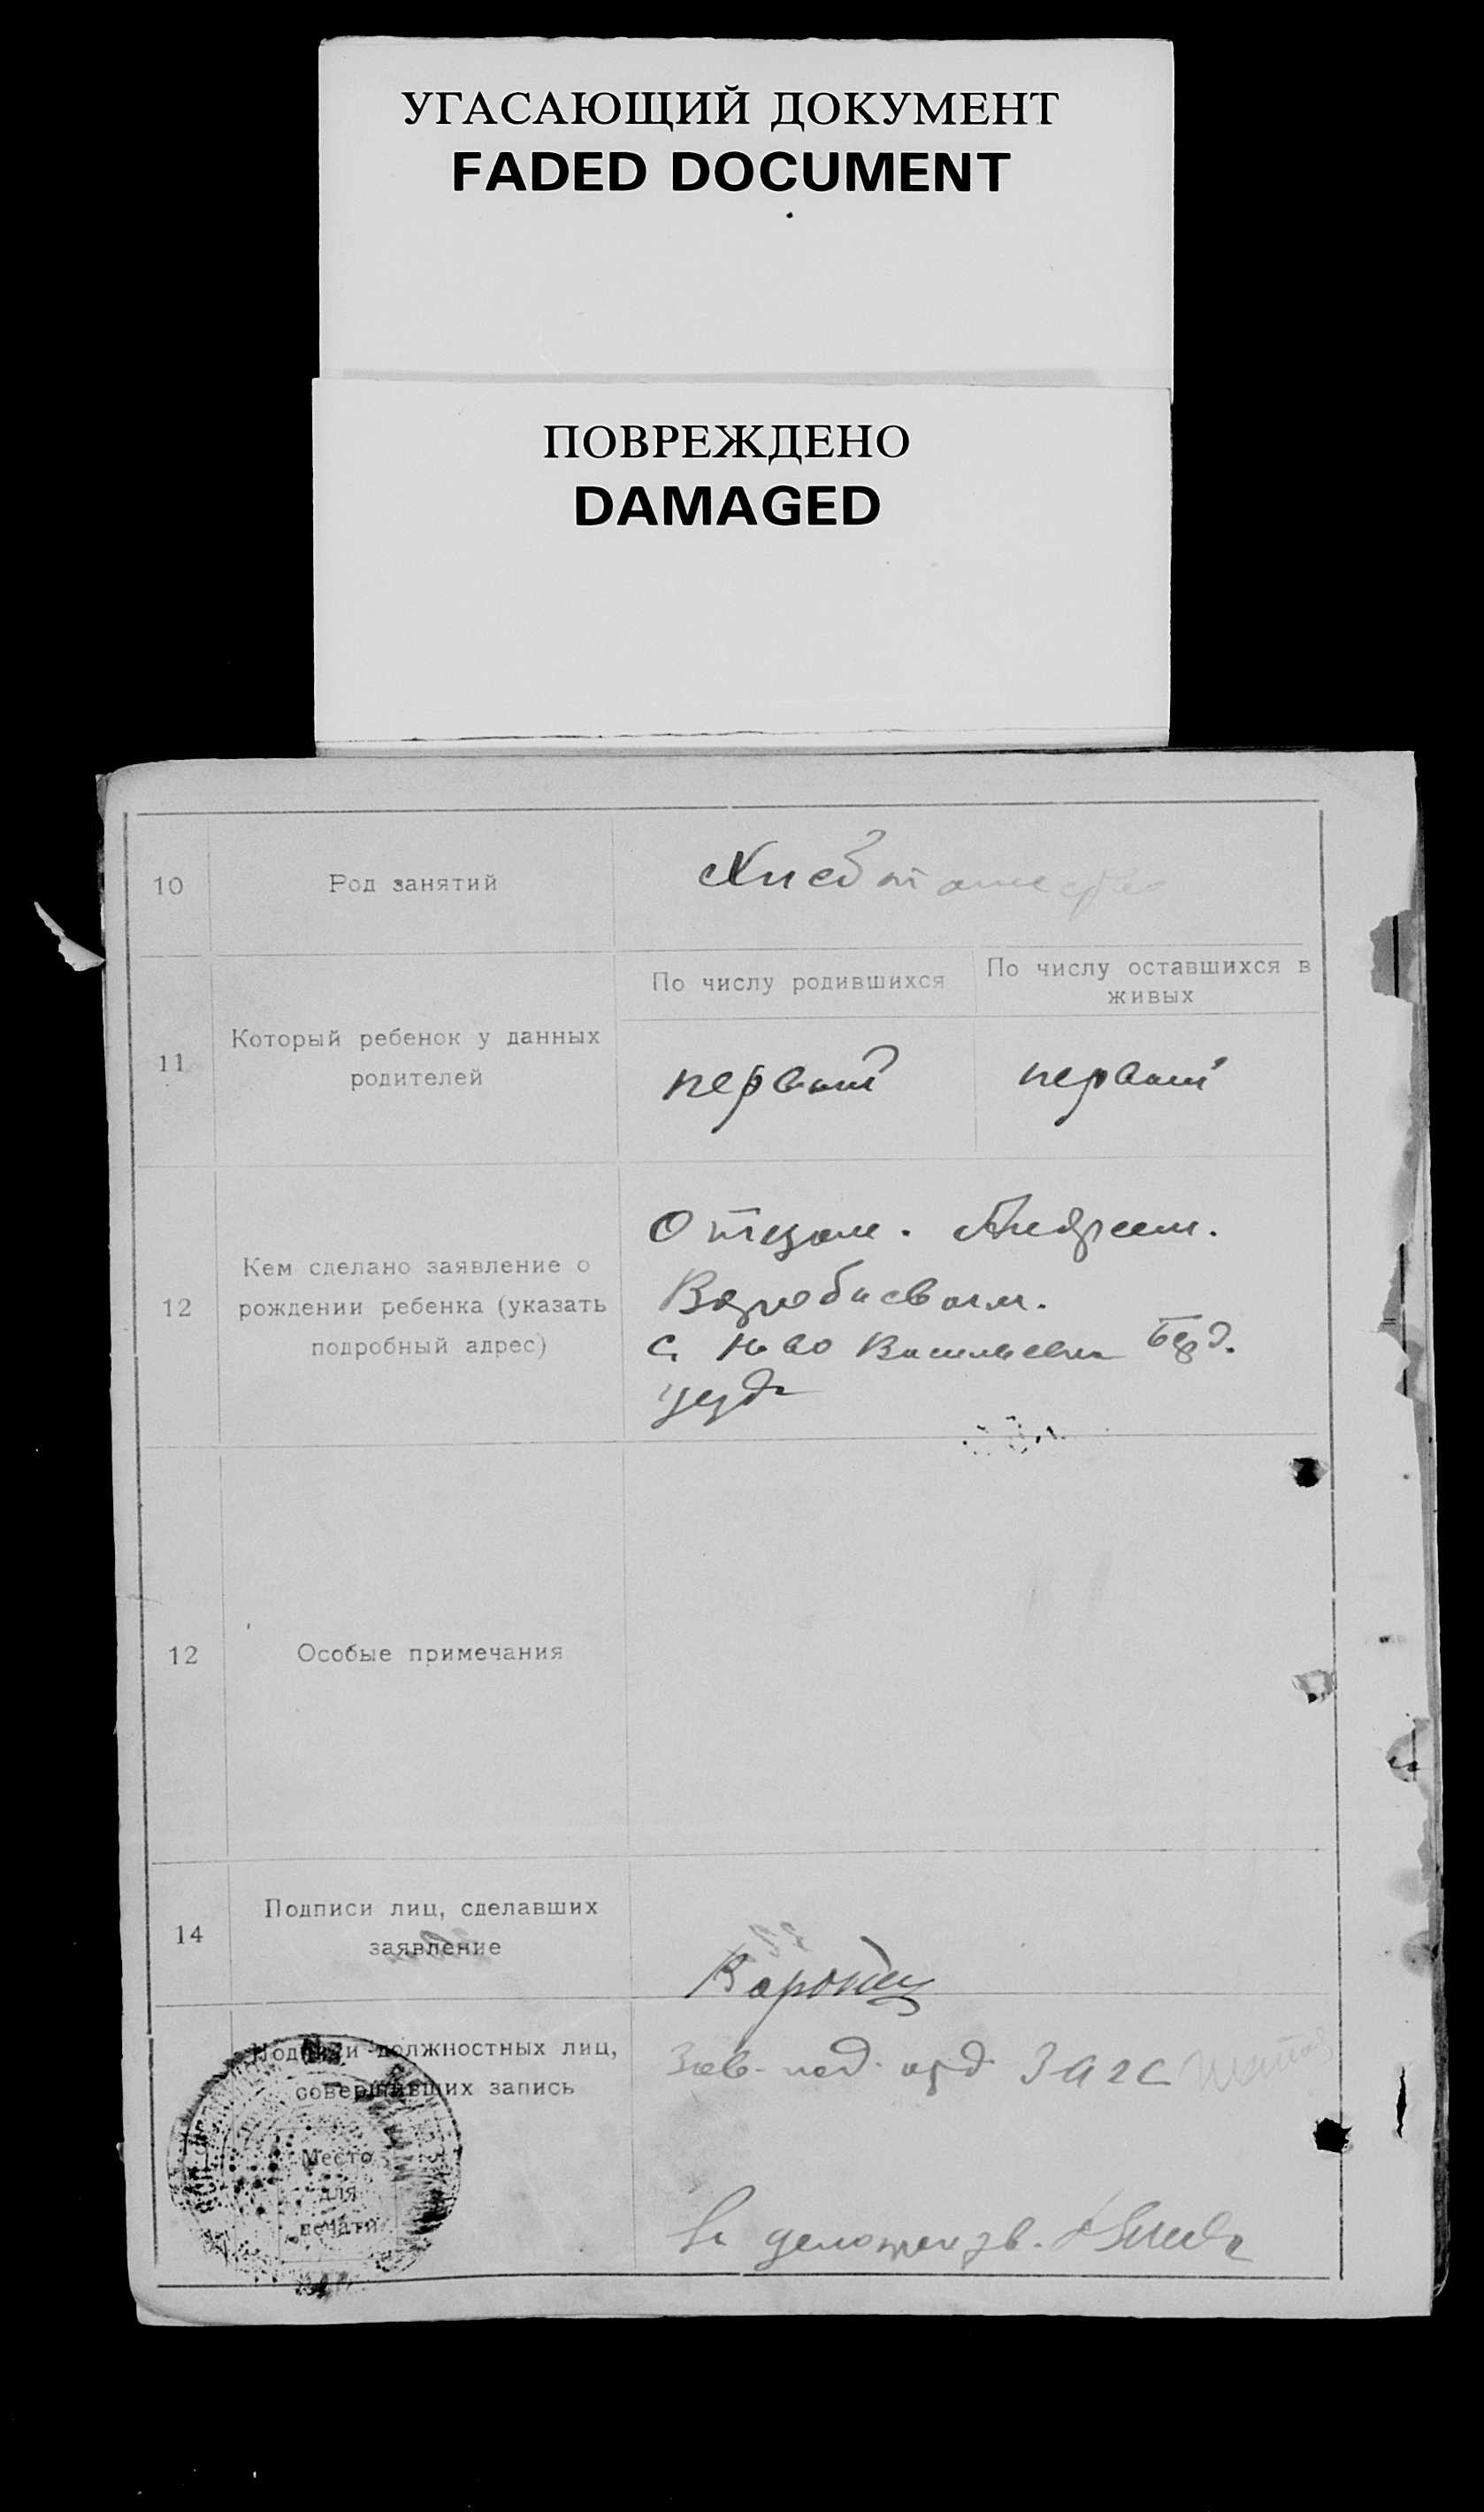 УГАСАЮЩИЙ ДОКУМЕНТ
FADED DOCUMENT
ПОВРЕЖДЕНО
DAMAGED
10
Род занятий
11
Который ребенок у данных
родителей
По числу родившихся
По числу оставшихся в
живых
первый
первый
12
Кем сделано заявление о
рождении ребенка (указать
подробный адрес)
Отцом. Андреем.
с. Ново Васильевка
12
Особые примечания
14
Подписи лиц, сделавших
заявление
Подписи должностных лиц,
совершивших запись
Место
для
печати
Зав. под. отд. Загс
делопроизв.